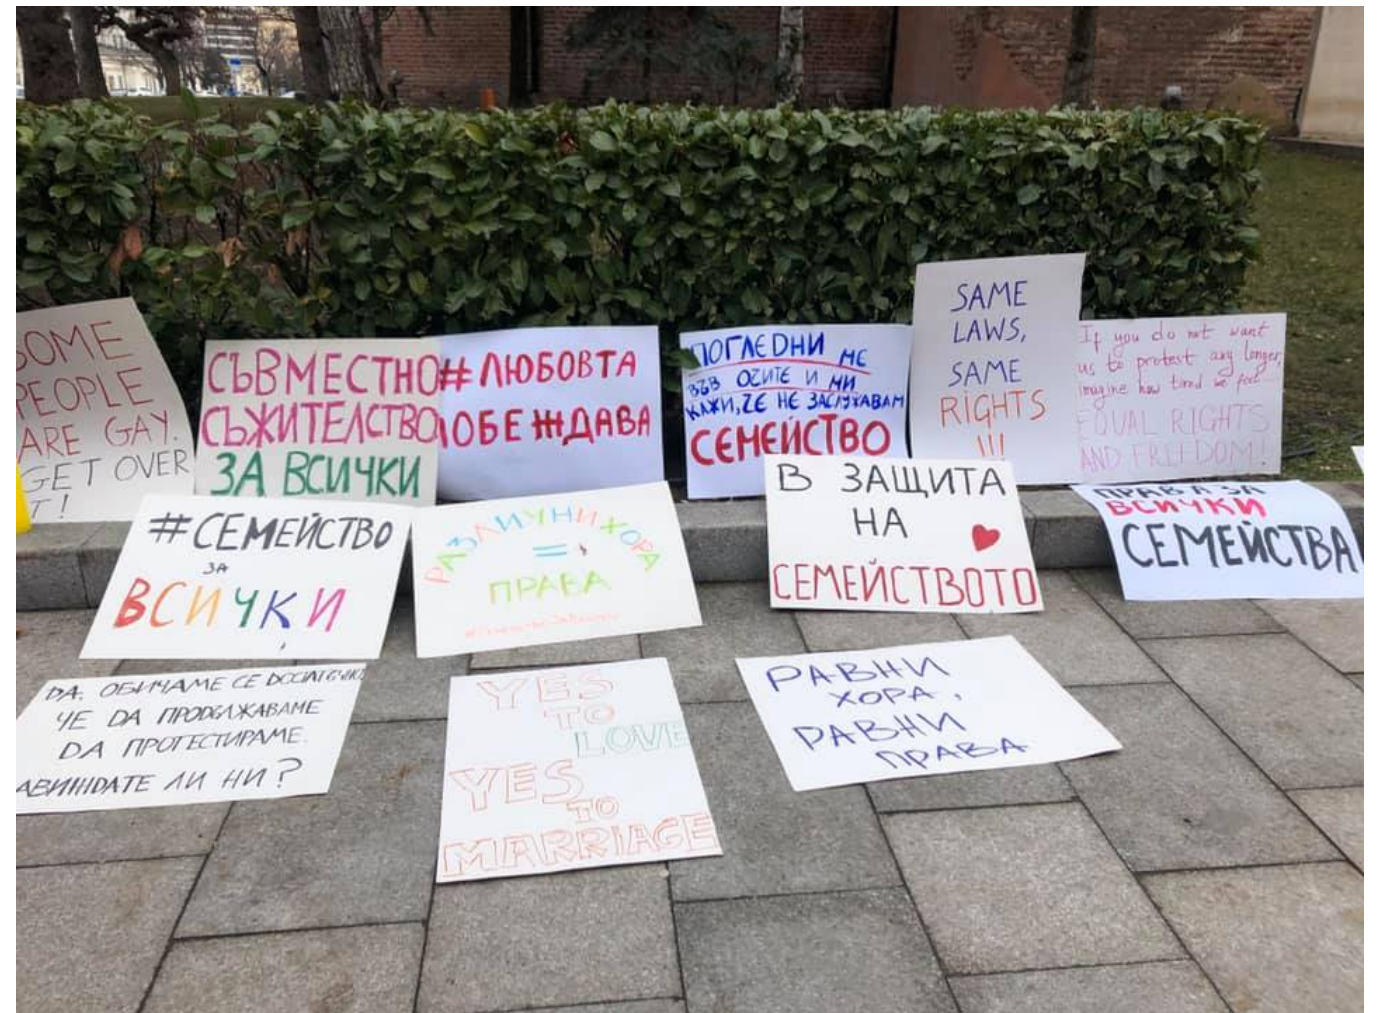 SOME
PEOPLE
ARE GAY.
GET OVER
IT!
СЪВМЕСТНО
СЪЖИТЕЛСТВО
ЗА ВСИЧКИ
#ЛЮБОВТА
ПОБЕЖДАВА
ПОГЛЕДНИ МЕ
ВЪВ ОЧИТЕ И МИ
КАЖИ, ЧЕ НЕ ЗАСЛУЖАВАМ
СЕМЕЙСТВО
SAME
LAWS,
SAME
RIGHTS
!!!
If you do not want
us to protest any longer,
imagine how tired we feel...
EQUAL RIGHTS
AND FREEDOM!
#СЕМЕЙСТВО
ЗА
ВСИЧКИ
РАЗЛИЧНИ ХОРА
=
ПРАВА
В ЗАЩИТА
НА
СЕМЕЙСТВОТО
ПРАВА ЗА
ВСИЧКИ
СЕМЕЙСТВА
ДА. ОБИЧАМЕ СЕ ДОСТАТЪЧНО,
ЧЕ ДА ПРОДЪЛЖАВАМЕ
ДА ПРОТЕСТИРАМЕ.
ЛИ НИ?
YES
TO
LOVE
YES
TO
MARRIAGE
РАВНИ
ХОРА,
РАВНИ
ПРАВА